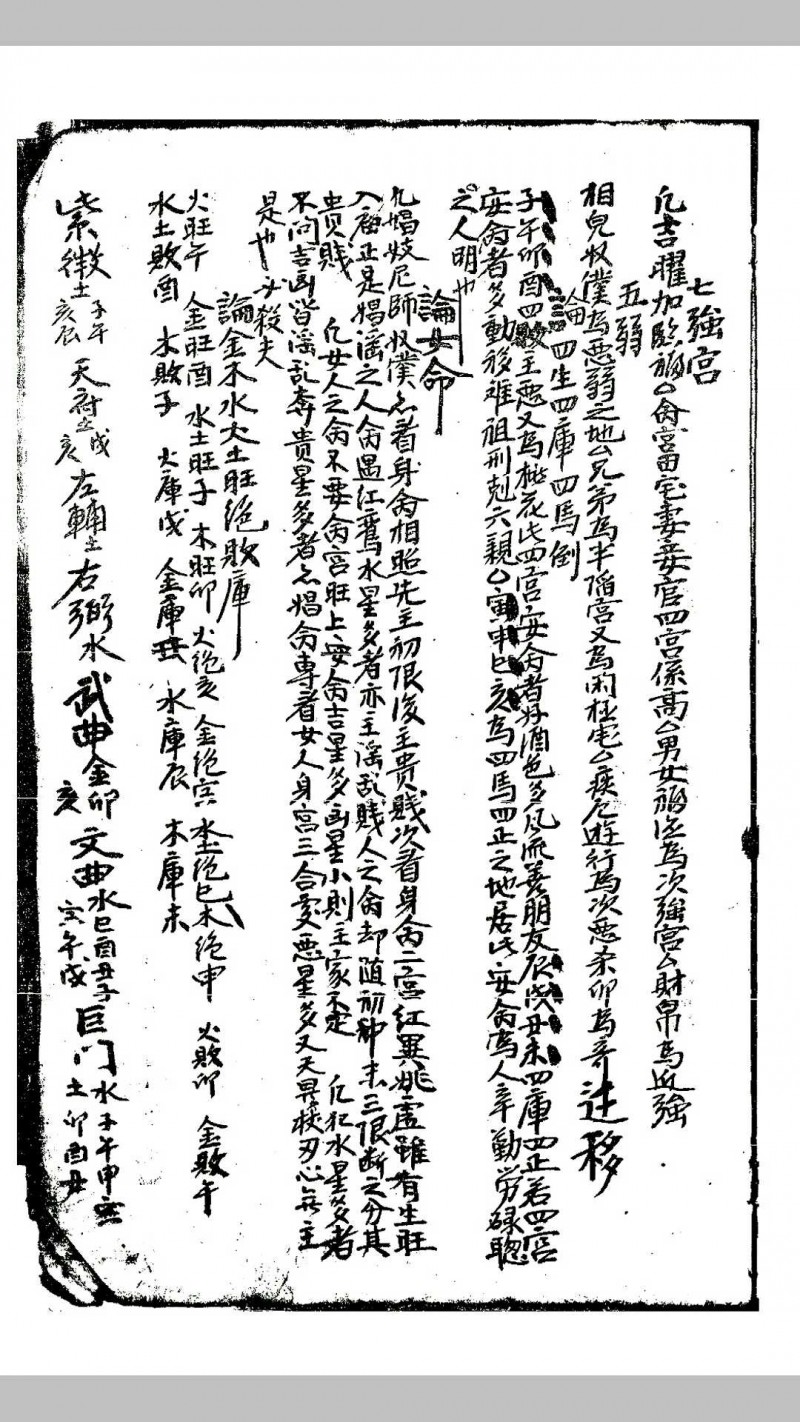 七強宮
凡吉曜加臨福么命宮田宅妻妾官四宮係高么男女福德為次強宮么財帛為近強
五弱
相皃奴僕為惡弱之地么兄弟為半陷宮又為閑極宅么疾厄遊行為次惡 卯為 迁移
論四生四庫四馬倒
子午卯酉四敗主惡又為桃花此四宮安命者好酒色多風流善朋友辰戌丑未四庫四正若四宮
安命者多動移难祖刑剋六親么寅申巳亥為四馬四正之地居此安命為人辛勤労碌聰
之人明也
論女命
凡娼妓尼師奴僕么看身命相照先主初限後主贵賤次看身命二宮紅異姚虚雖有生旺
入庙正是娼滛之人命遇紅鸞水星多者亦主滛乱賤人之命却随初 末三限断之分其
贵賤 凡女人之命不要命宮旺上安命吉星多凶星小則主家不定 凡犯水星多者
不问吉凶皆滛乱奔贵星多者么娼命専看女人身宮三合 惡星多又天異 刃心無主
是也必殺夫
論金木水火土旺绝敗庫
火旺午 金旺酉 水土旺子 木旺卯 火绝亥 金绝寅 水土绝巳 木绝申 火敗卯 金敗午
水土敗酉 木敗子 火庫戌 金庫丑 水庫辰 木庫未
紫微土子午亥辰 天府土戌亥 左輔土 右弼水 武曲金卯亥 文曲水巳酉丑子寅午戌 巨门水子午申 土卯酉丑